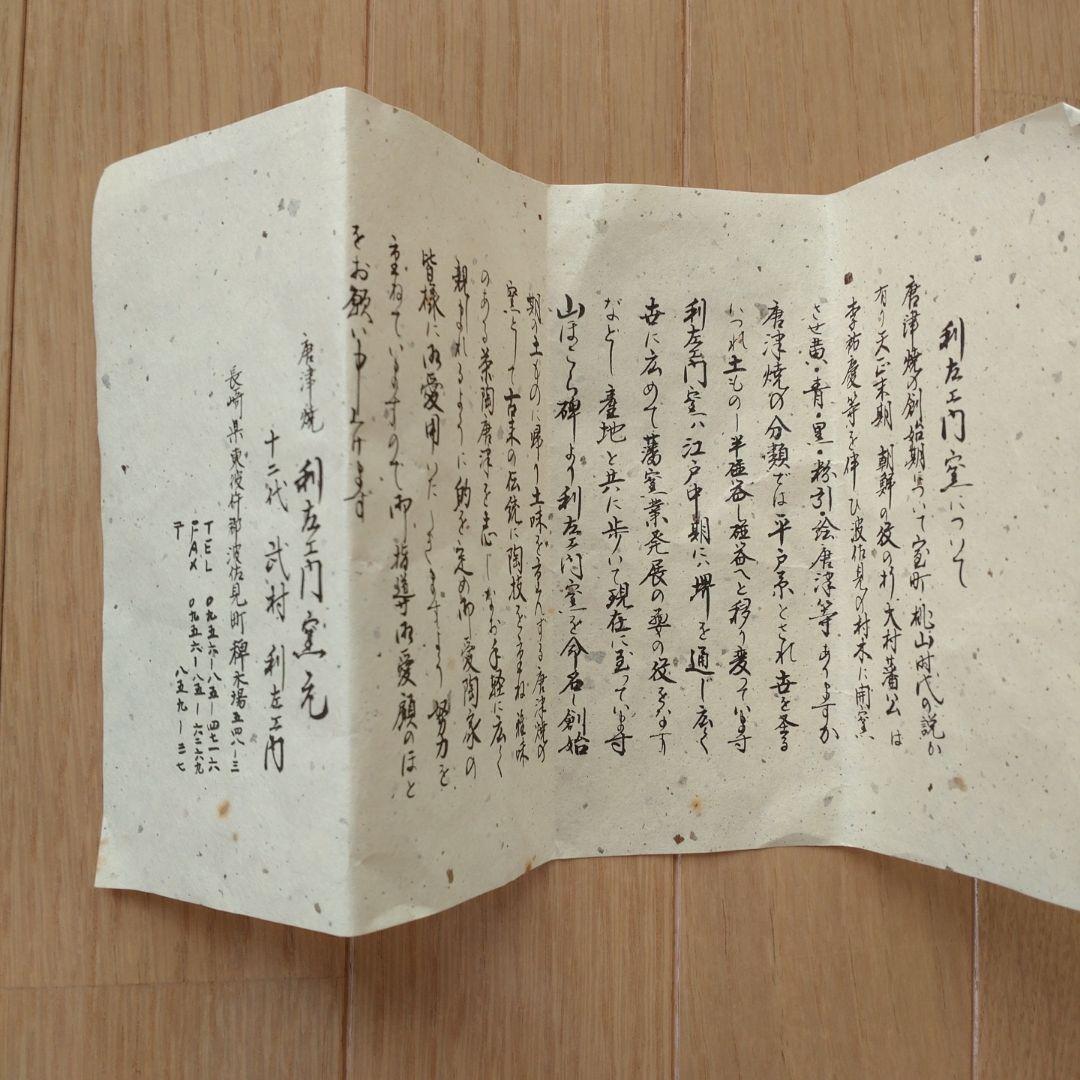 利左エ門窯について
唐津焼の創始期について室町桃山時代の説が
有り天正末期 朝鮮の役の折 大村藩公は
李祐慶等を伴ひ波佐見の村木に開窯
させ黄・青・黒・粉引・絵唐津等ありますが
唐津焼の分類では平戸系とされ
いつれ土ものし半磁器し磁器へと移り変っています
利左エ門窯は江戸中期に堺を通じ広く
世に広めて藩窯業発展の要の役をなす
などし産地と共に歩いて現在に至っています
山ほこら碑より利左エ門窯を命名し創始
期の土ものに帰り土味を重んずる唐津焼の
窯として古来の伝統に陶技を重ね雅味
のある茶陶唐津を志しなお手軽に広く
親まれるように的を定め御愛陶家の
皆様に御愛用いただきますよう努力を
重ねていますので御指導御愛顧のほど
をお願い申し上げます
唐津焼 利左エ門窯元
十二代 武村 利左エ門
長崎県東彼杵郡波佐見町稗木場五四八-三
TEL 〇九五六-八五-四七一六
FAX 〇九五六-八五-六二六九
〒 八五九-三七